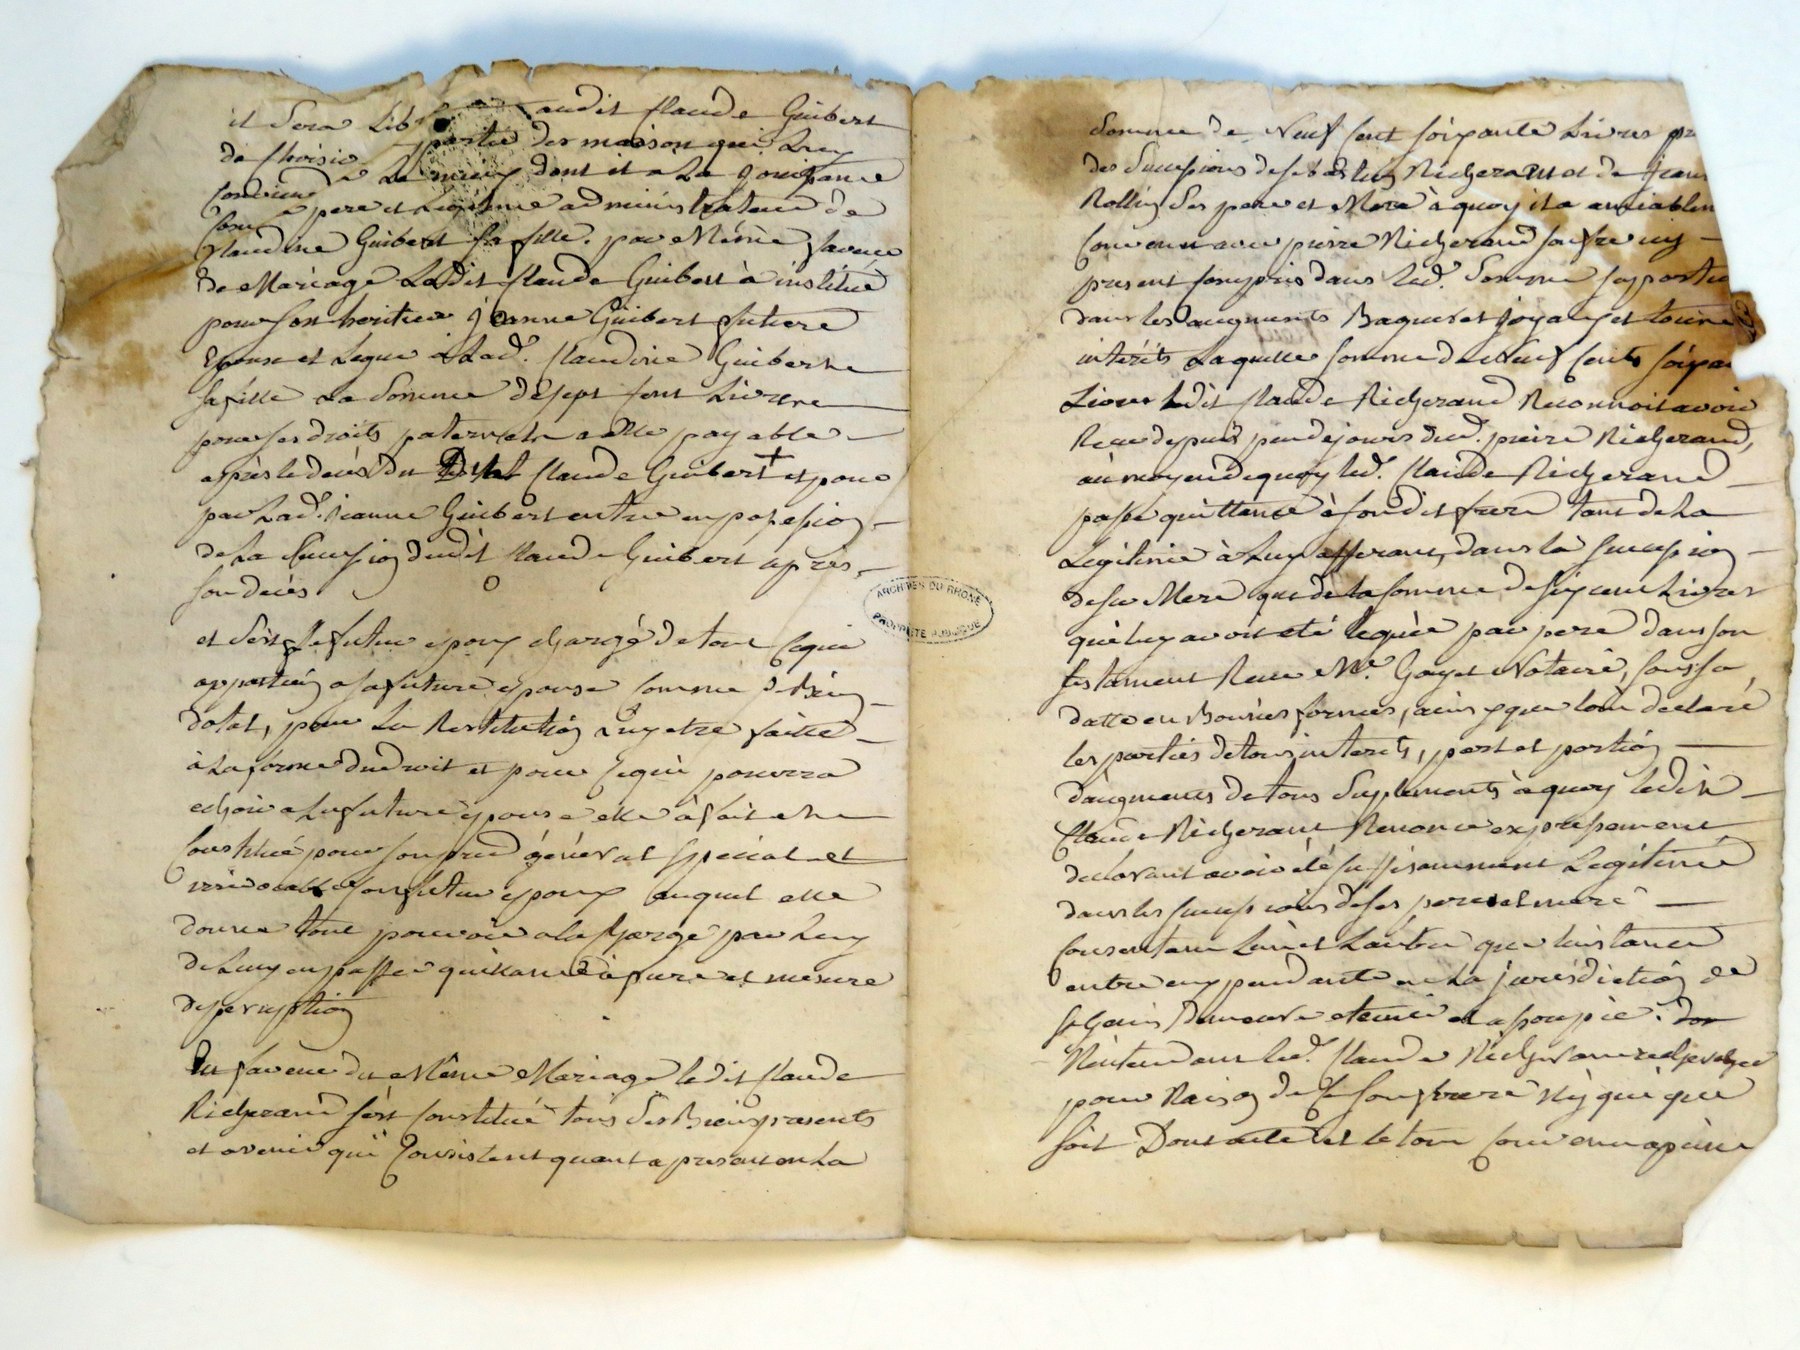 il Sera Lib audit Claude Guibert
de Choisir partie des maison qui Luy
Conviend Le mieux dont il a La Jouissance
Com pere et Legitime administrateur de
Claudine Guibert sa fille. par Même faveur
de Mariage Ledit Claude Guibert à institué
pour son heritier Jeanne Guibert future
Epouse et Legue à Lad. Claudine Guibert
sa fille La Somme de sept Cent Livres
pour ses droits paternels a elle payable
après le decès du Claude Guibert et pour
par Lad. Jeanne Guibert entrer en possession
de La Succession dudit Claude Guibert après
son decès
et s'est le futur epoux Chargé de tout Ce qui
appartien a sa future epouse comme Bien
dotal, pour La Restitution Luy etre faitte
à La forme du droit et pour Ce qui pourra
echoir a La future epouse elle à fait et
Constitué pour son general special et
irrevocable son futur epoux auquel elle
donne tout pouvoir a la Charge par Luy
de Luy en passer quittance à fure et mesure
de perception
En faveur du Même Mariage ledit Claude
Richerand s'est Constitué tous Ses Biens presents
et avenir qui Consistent quant a present en La
Somme de Neuf Cent soixante Livres
des Successions de Richerand et de
Rollin Ses pere et Mere à quoy il a amiablem
Convenu avec pierre Richerand son frere icy
present Compris dans lad. Somme sa portion
dans les augments Bagues et Joyaux et
intérêts Laquelle somme de Neuf Cents
Livres ledit Claude Richerand Reconnoit avoir
Receu depuis peu de jours dud. pierre Richerand,
au moyen de quoy led. Claude Richerand
passe quittance à son dit frere tant de La
Legitime à Luy afferant, dans la succession
de sa Mere que de la somme de six cent Livres
qui luy avoit eté leguée par pere dans son
testament Receu Me. Goyet Notaire, sous sa
datte en Bonnes formes, ainsy que l'on declaré
les parties de tous interets, part et portion
d'augments de tous Suplements à quoy ledit
Claude Richerand Renonce expressement
declarant avoir été suffisamment Legitimé
dans les successions de ses pere et mere
Consentant L'un et L'autre que l'instance
entre eux pendante en La jurisdiction de
Demeure eteinte et assoupie.
N'entendant led. Claude Richerand
pour Raison de son frere n'y qui que
soit Dont acte et le tout Convenu
ARCHIVES DU RHÔNE
PROPRIÉTÉ PUBLIQUE